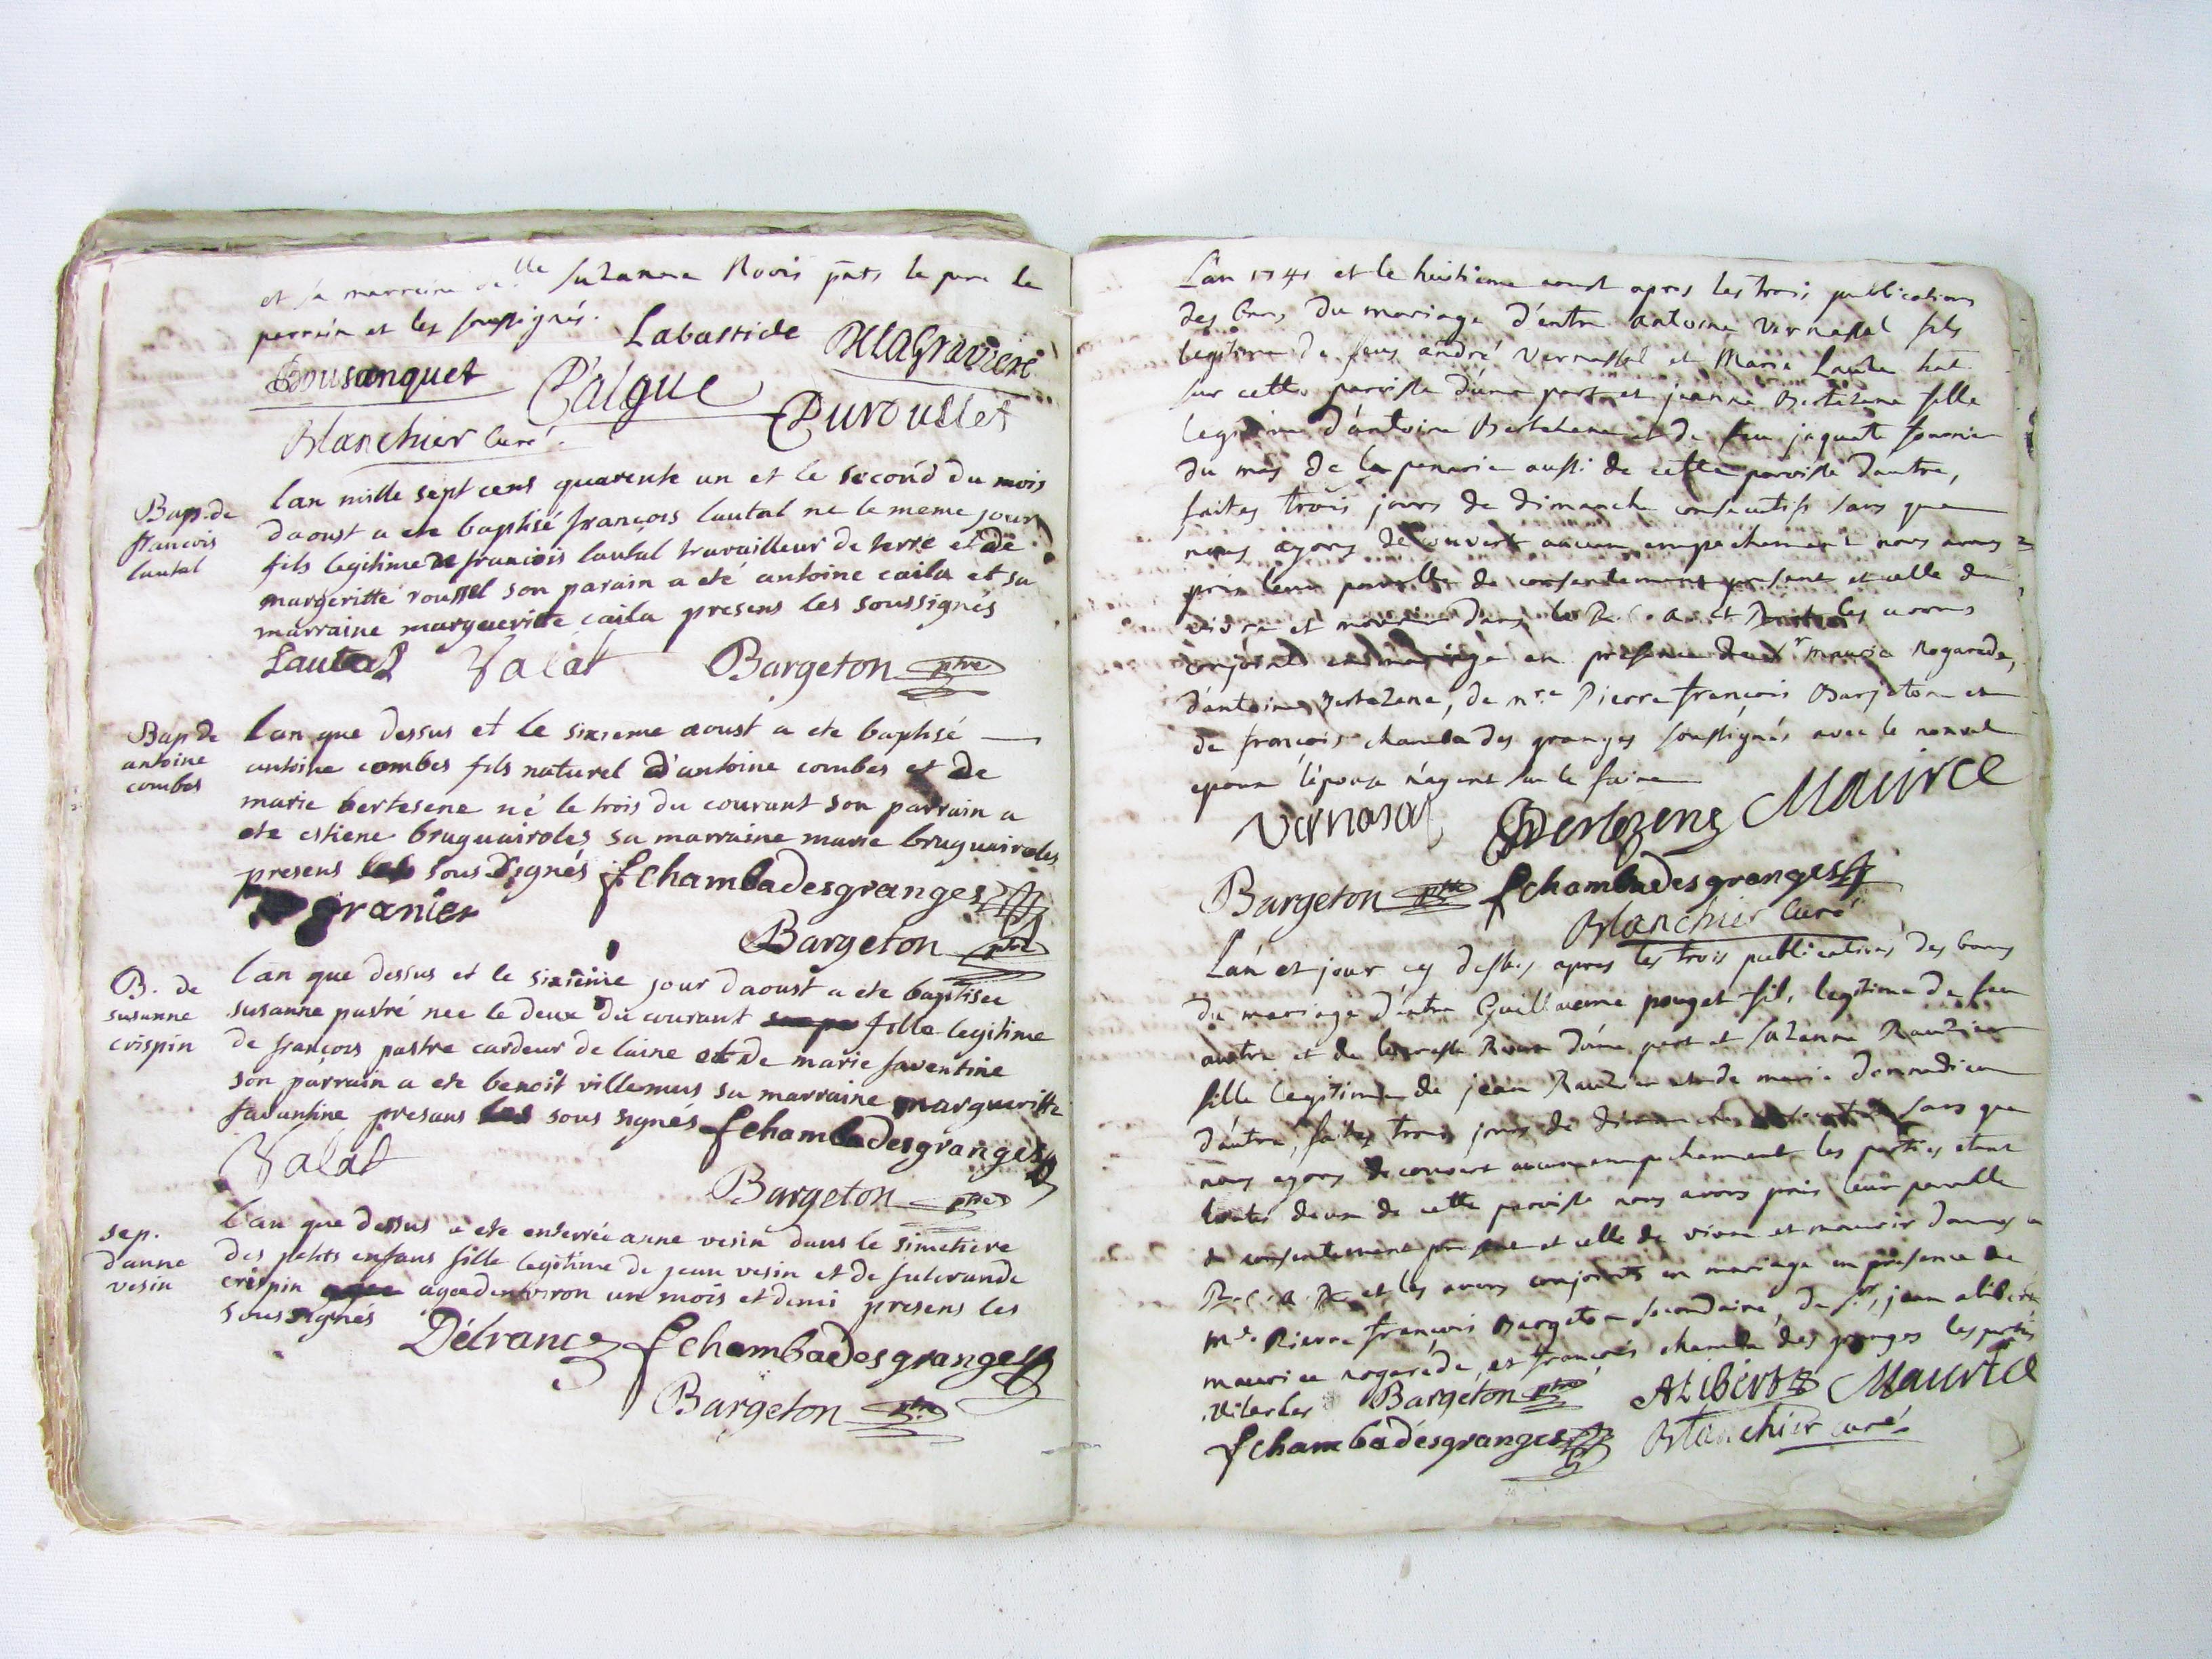 et sa marraine delle Suzanne Rovis pnts le pere le
perrein et les soussignés.
Labastide
Bousanquet
Dalgue
Blanchier Curé
Bap. de
francois
lautal
lan mille sept cens quarente un et le second du mois
daoust a ete baptisé françois lautal ne le meme jour
fils legitime de francois lautal travailleur de terre et de
margeritte roussel son parain a eté antoine caila et sa
marraine margueritte caila presens les soussignés
Lautal Valat Bargeton ptre
Bap de
antoine
combes
lan que dessus et le sixieme aoust a ete baptisé
antoine combes fils naturel d'antoine combes et de
marie bertesene né le trois du courant son parrain a
ete estiene bruguairoles sa marraine marie bruguairoles
presens les sous signés fchambadesgranges
granier
Bargeton ptre
B. de
susanne
crispin
lan que dessus et le sixieme jour daoust a ete baptisee
susanne pastré nee le deux du courant fille legitime
de françois pastre cardeur de laine et de marie faventine
son parrain a ete benoit villemus sa marraine margueritte
favantine presans les sous signés fchambadesgranges
Valat
Bargeton ptre
sep.
d'anne
vesin
lan que dessus a ete enterrée anne vesin dans le simetiere
des petits enfans fille legitime de jean vesin et de fulcrande
crispin agee denviron un mois et demi presens les
soussignés
Delranc fchambadesgranges
Bargeton ptre
L'an 1741 et le huitieme aoust apres les trois publications
des bans du mariage d'entre antoine Vernassal fils
legitime de feus andré Vernassal et Marie
sur cette paroisse d'une part et jeanne Bertezene fille
legitime d'antoine Bertezene et de feu jaquette
du mas de la penarie aussi de cette paroisse dautre,
faites trois jours de dimanche consecutifs sans que
nous ayons decouvert aucun empechement nous avons
pris leur parolle de consentement present et celle de
vivre et mourir dans la R. C. A. et R. et les avons
conjoints en mariage en presence de sr maurice Nogarede,
d'antoine Bertezene, de mre Pierre françois Barjeton et
de françois chamba des granges soussignés avec le nouvel
epoux l'epouse n'ayant su le faire
Vernasal Bertezene Maurice
Bargeton ptre fchambadesgranges
Blanchier Curé
L'an et jour cy dessus apres les trois publications des bans
du mariage d'entre Guillaume pouget fils legitime de feu
autre et de d'une part et Suzanne Rauzier
fille legitime de jean Rauzier et de marie Donnadieu
d'autre, faites trois jours de dimanche consecutifs sans que
nous ayons decouvert aucun empechement les parties etant
toutes deux de cette paroisse nous avons pris leur parolle
de consentement present et celle de vivre et mourir dans la
R. C. A. R. et les avons conjoints en mariage en presence de
mre Pierre françois Bargeton secondaire, de sr jean alibert
maurice nogarede, et françois chamba des granges les parties
Bargeton ptre Alibert Maurice
fchambadesgranges Blanchier curé